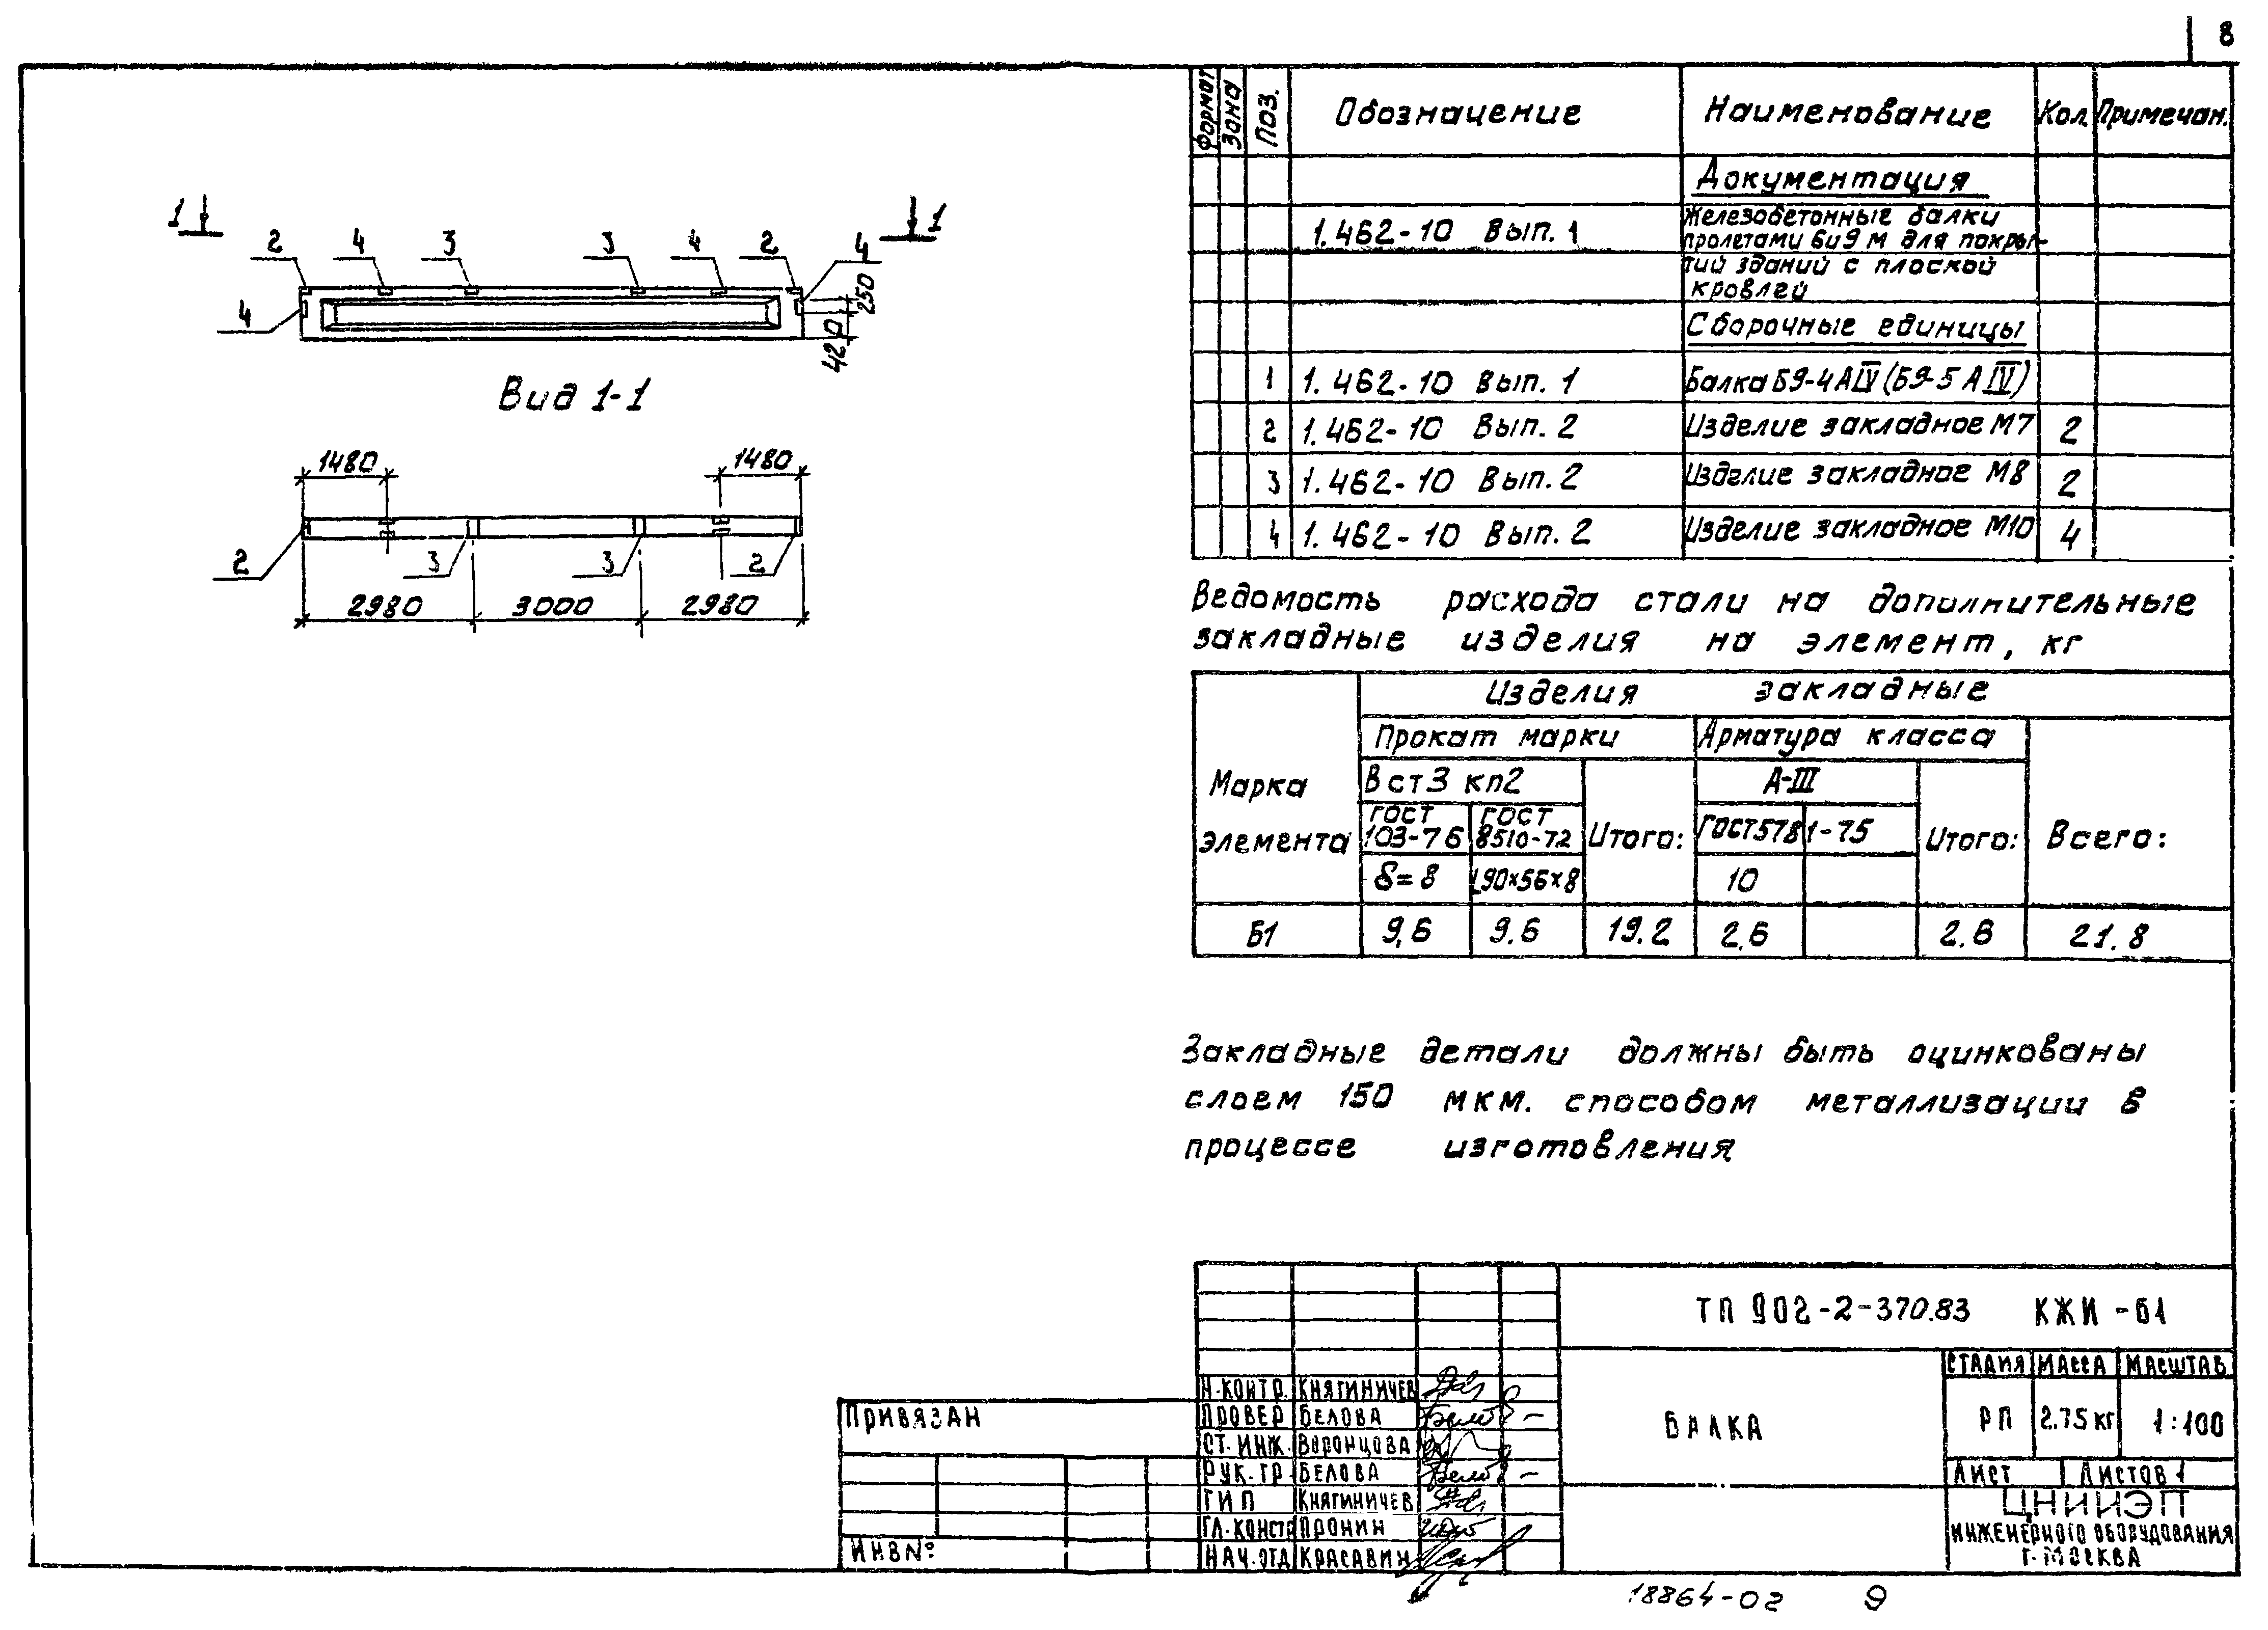 8
Формат Зона Поз. Обозначение Наименование Кол. Примечан.
Документация
1.462-10 Вып. 1 Железобетонные балки
пролетами 6 и 9 м для покры-
тий зданий с плоской
кровлей
Сборочные единицы
1 1.462-10 Вып. 1 Балка Б9-4АIV (Б9-5АIV)
2 1.462-10 Вып. 2 Изделие закладное М7 2
3 1.462-10 Вып. 2 Изделие закладное М8 2
4 1.462-10 Вып. 2 Изделие закладное М10 4
1 1
2 4 3 3 4 2 4
4 250
420
Вид 1-1
1480 1480
2 3 3 2
2980 3000 2980
Ведомость расхода стали на дополнительные
закладные изделия на элемент, кг
Марка
элемента
Изделия закладные
Прокат марки Арматура класса
Вст3 кп2 А-III
ГОСТ 103-76 ГОСТ 8510-72 Итого: ГОСТ 5781-75 Итого: Всего:
δ=8 L90×56×8 10
Б1 9,6 9.6 19.2 2.6 2.6 21.8
Закладные детали должны быть оцинкованы
слоем 150 мкм. способом металлизации в
процессе изготовления
ТП 902-2-370.83 КЖИ-Б1
Н.КОНТР. КНЯГИНИЧЕВ
ПРОВЕР БЕЛОВА
СТ. ИНЖ. ВОРОНЦОВА
РУК. ГР. БЕЛОВА
ГИП КНЯГИНИЧЕВ
ГЛ. КОНСТР ПРОНИН
НАЧ. ОТД КРАСАВИН
БАЛКА
СТАДИЯ МАССА МАСШТАБ
РП 2.75 кг 1:100
ЛИСТ ЛИСТОВ 1
ЦНИИЭП
ИНЖЕНЕРНОГО ОБОРУДОВАНИЯ
Г. МОСКВА
ПРИВЯЗАН
ИНВ №
18864-02 9